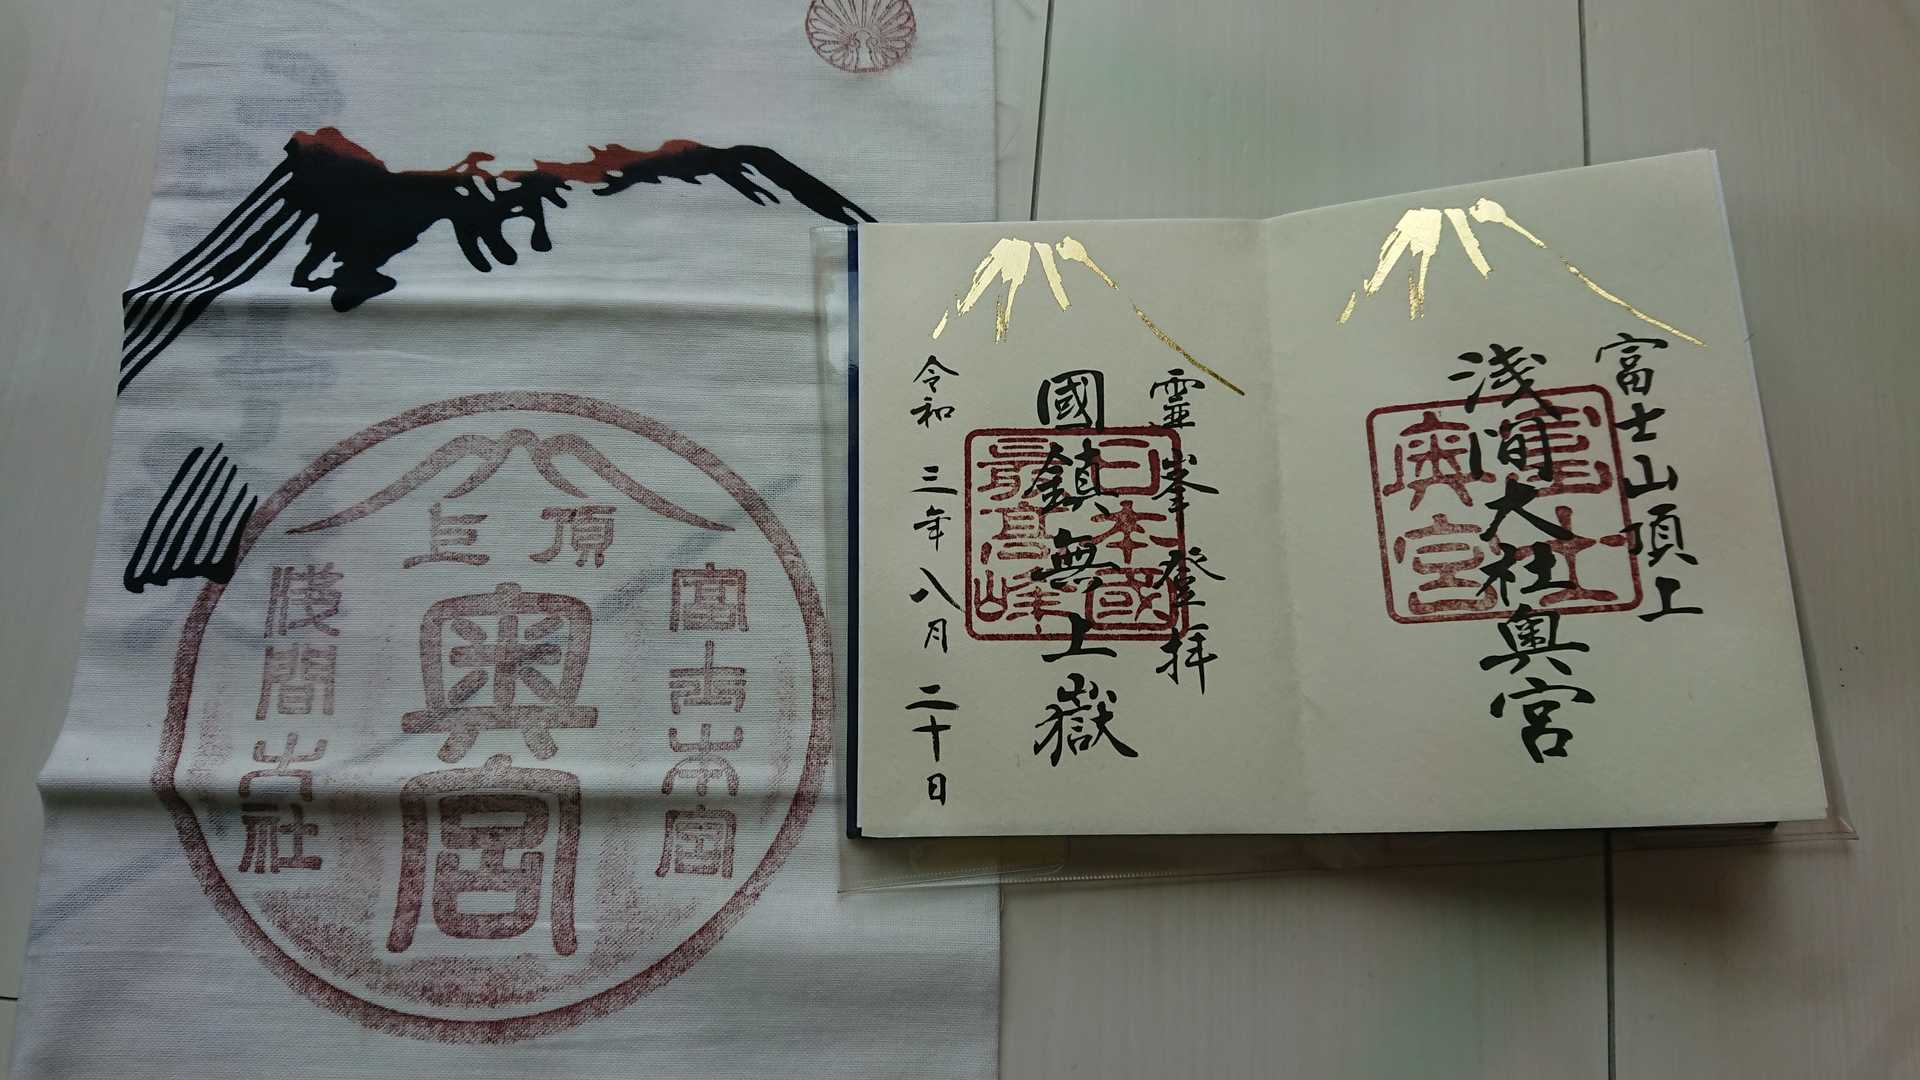 富士山頂上
浅間大社奥宮
富士
奥宮
靈峯登拝
國鎮無上嶽
日本國
最高峰
令和三年八月二十日
頂上
富士本宮
奥宮
浅間大社